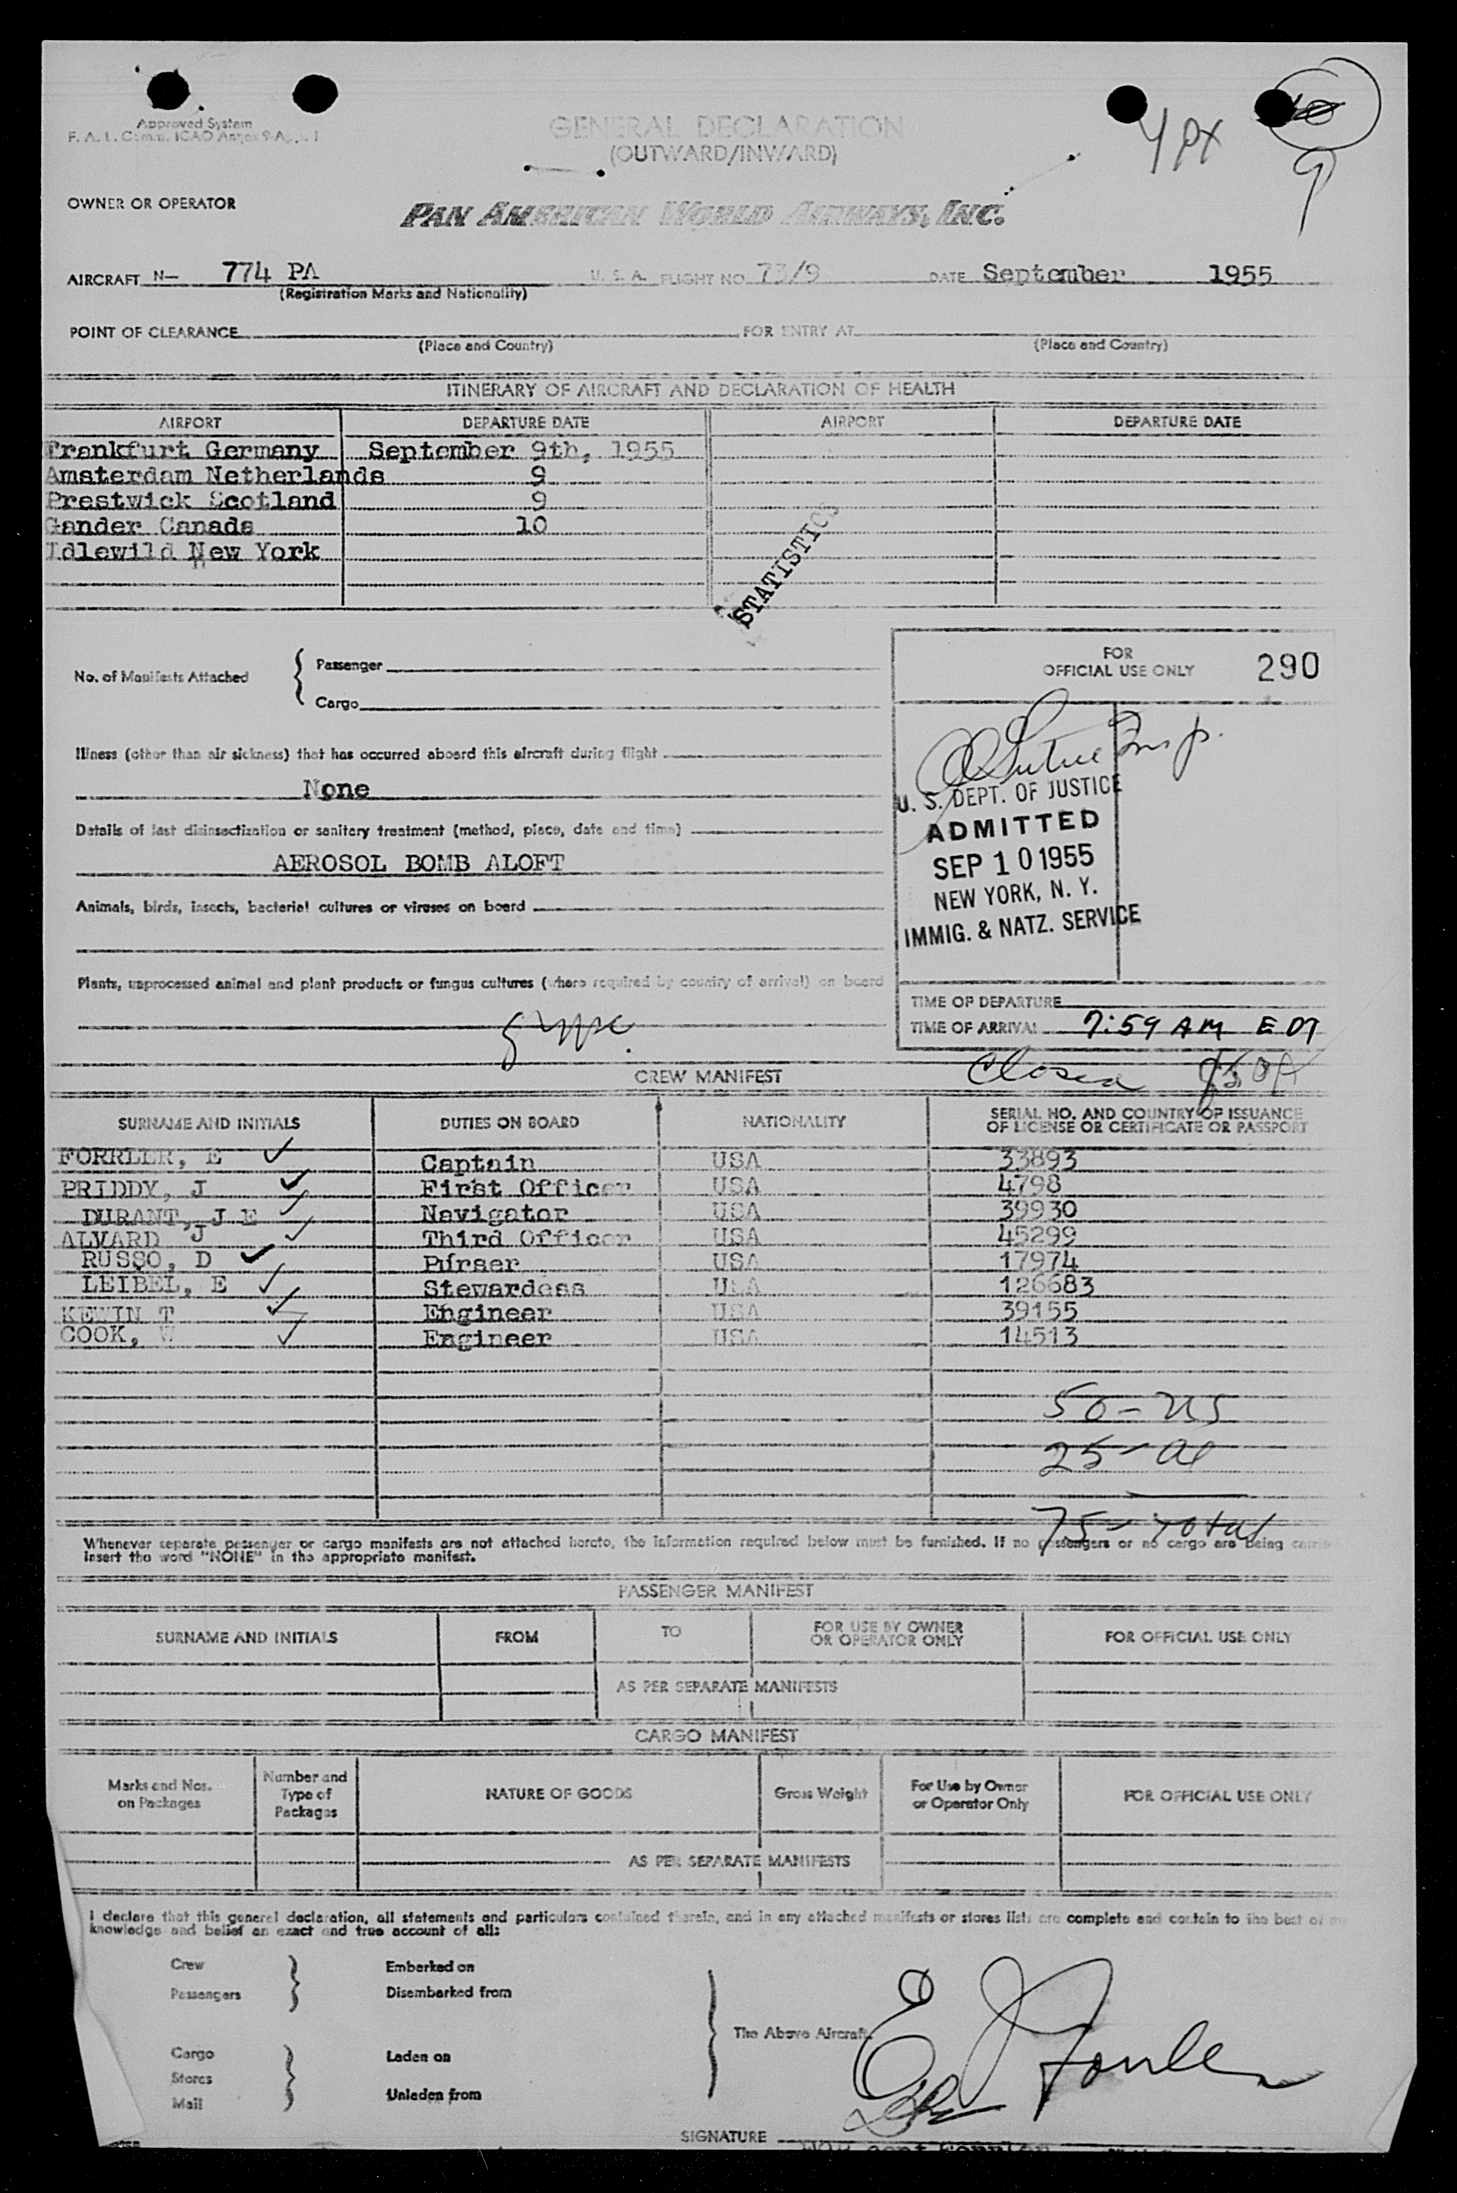 Approved System
GENERAL DECLARATION
(OUTWARD/INWARD)
4 px
10
9
OWNER OR OPERATOR
PAN AMERICAN WORLD AIRWAYS, INC.
AIRCRAFT N— 774 PA U. S. A. FLIGHT NO. 73/9 DATE September 1955
(Registration Marks and Nationality)
POINT OF CLEARANCE FOR ENTRY AT
(Place and Country) (Place and Country)
ITINERARY OF AIRCRAFT AND DECLARATION OF HEALTH
AIRPORT DEPARTURE DATE AIRPORT DEPARTURE DATE
Frankfurt Germany September 9th, 1955
Amsterdam Netherlands 9
Prestwick Scotland 9
Gander Canada 10
Idlewild New York
STATISTICS
FOR
OFFICIAL USE ONLY 290
No. of Manifests Attached { Passenger
Cargo
Illness (other than air sickness) that has occurred aboard this aircraft during flight
None
Details of last disinsectization or sanitary treatment (method, place, date and time)
AEROSOL BOMB ALOFT
Animals, birds, insects, bacterial cultures or viruses on board
Plants, unprocessed animal and plant products or fungus cultures (where required by country of arrival) on board
Insp.
U. S. DEPT. OF JUSTICE
ADMITTED
SEP 10 1955
NEW YORK, N. Y.
IMMIG. & NATZ. SERVICE
TIME OF DEPARTURE
TIME OF ARRIVAL 7:59 AM EDT
Closed
CREW MANIFEST
SURNAME AND INITIALS DUTIES ON BOARD NATIONALITY SERIAL NO. AND COUNTRY OF ISSUANCE
OF LICENSE OR CERTIFICATE OR PASSPORT
E Captain USA 33893
PRIDDY, J First Officer USA 4798
DURANT, J E Navigator USA 39930
ALVARD J Third Officer USA 45299
RUSSO, D Purser USA 17974
LEIBEL, E Stewardess USA 126683
KEWIN T Engineer USA 39155
COOK, W Engineer USA 14513
50 - US
25 - al
75 - Total
Whenever separate passenger or cargo manifests are not attached hereto, the information required below must be furnished. If no passengers or no cargo are being
insert the word "NONE" in the appropriate manifest.
PASSENGER MANIFEST
SURNAME AND INITIALS FROM TO FOR USE BY OWNER
OR OPERATOR ONLY FOR OFFICIAL USE ONLY
AS PER SEPARATE MANIFESTS
CARGO MANIFEST
Marks and Nos.
on Packages Number and
Type of
Packages NATURE OF GOODS Gross Weight For Use by Owner
or Operator Only FOR OFFICIAL USE ONLY
AS PER SEPARATE MANIFESTS
I declare that this general declaration, all statements and particulars contained therein, and in any attached manifests or stores lists are complete and contain to the best of my
knowledge and belief an exact and true account of all:
Crew Embarked on
Passengers Disembarked from
The Above Aircraft.
Cargo Laden on
Stores
Mail Unladen from
SIGNATURE